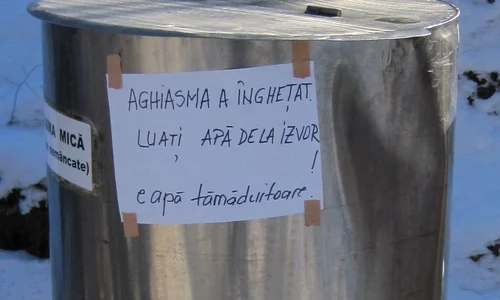 AGHIASMA A ÎNGHEȚAT.
LUAȚI APĂ DE LA IZVOR
!
e apă tămăduitoare.
MICĂ